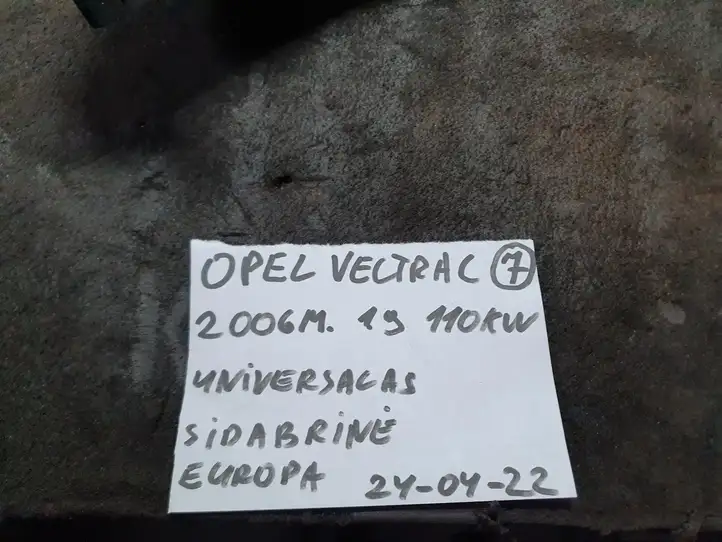 OPEL VECTRAC 7
2006M. 19 110KW
UNIVERSALAS
SIDABRINĖ
EUROPA 24-04-22